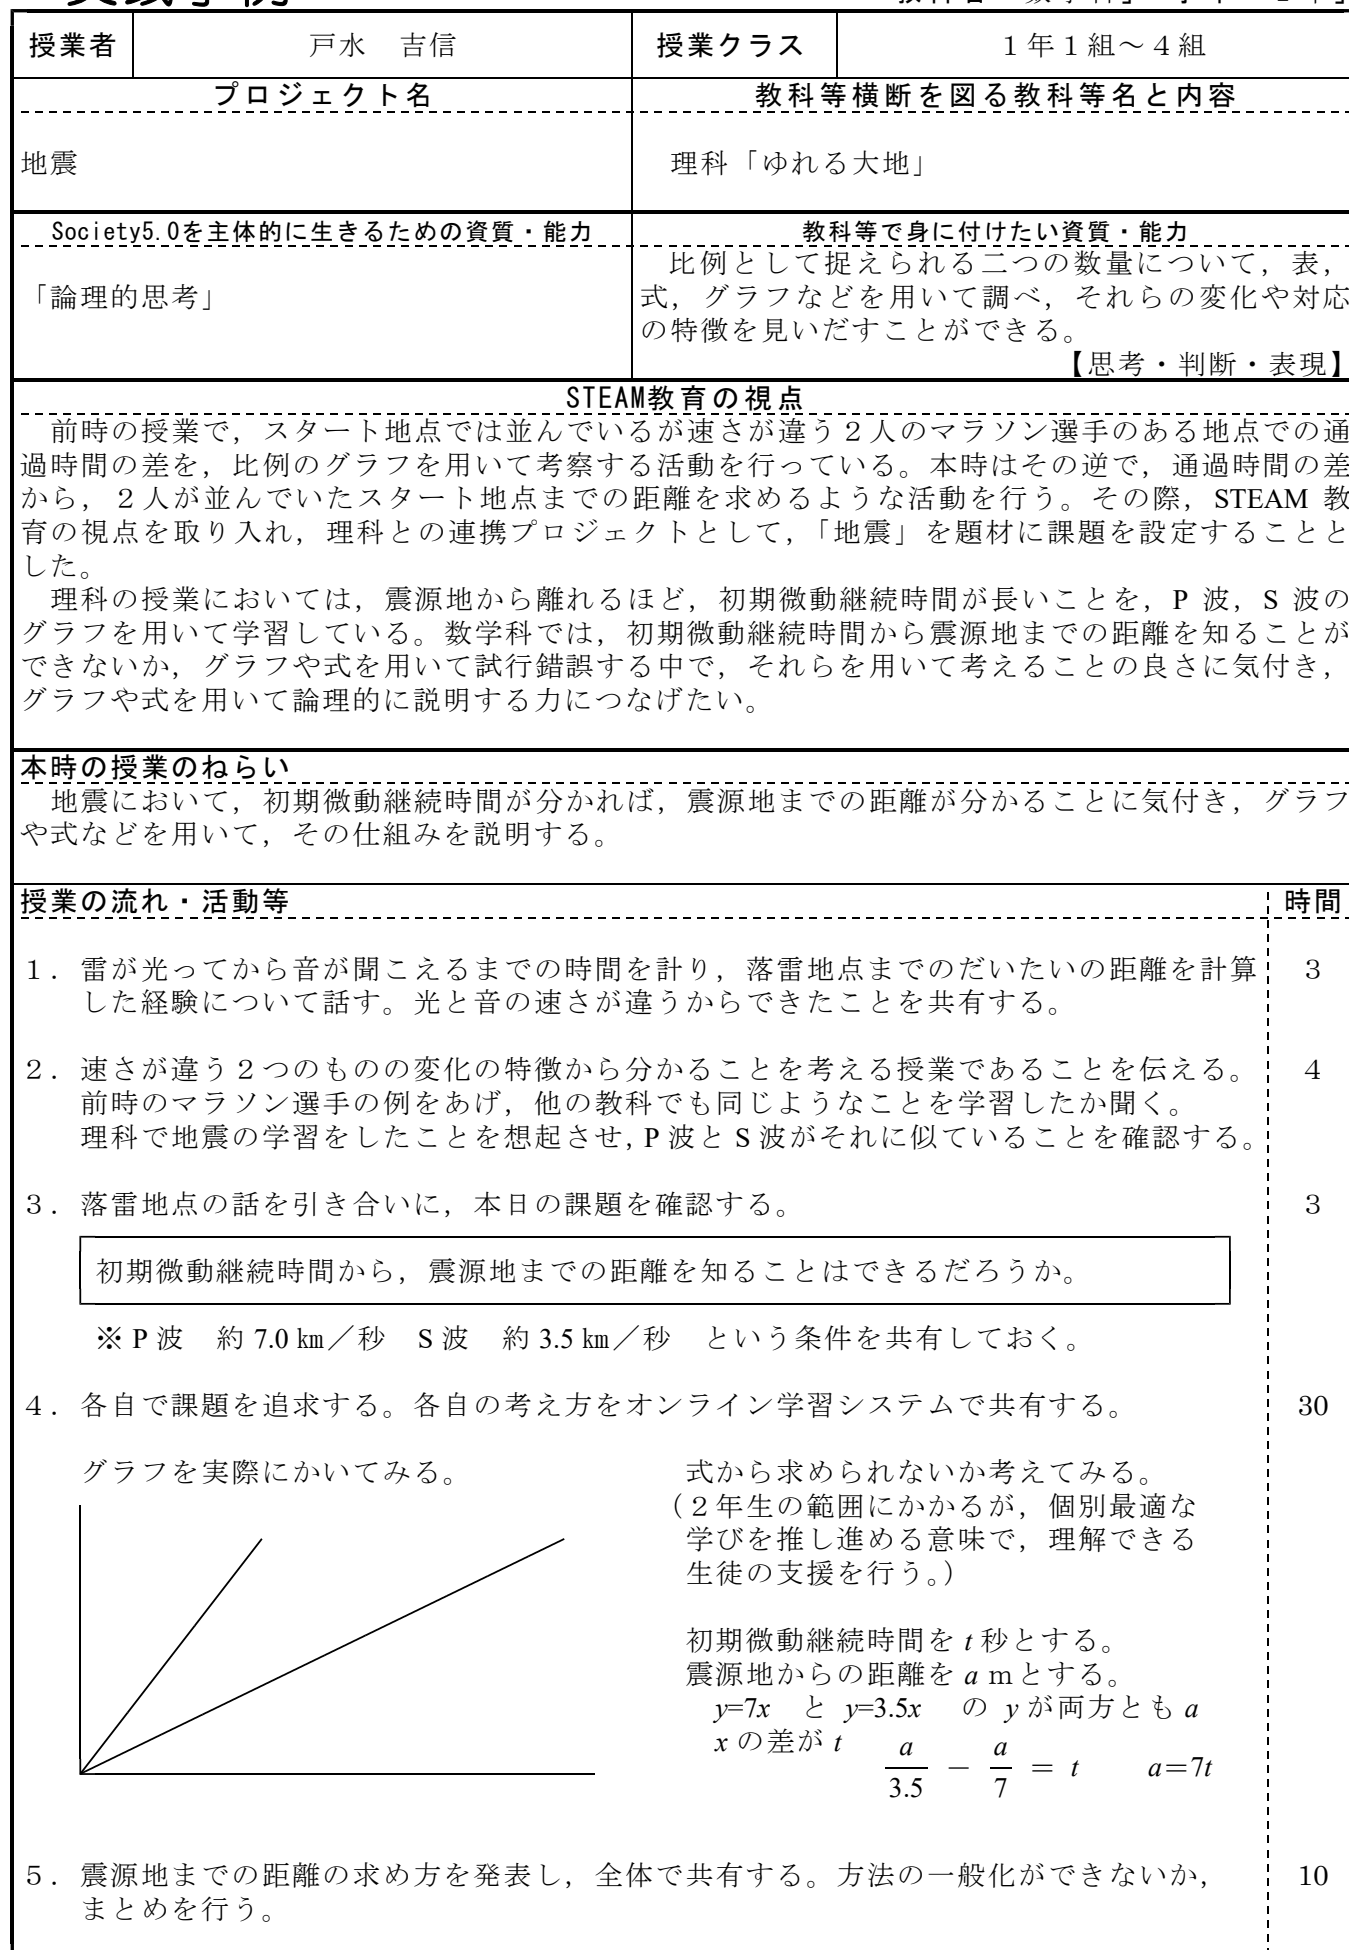 授業者 戸水　吉信 授業クラス １年１組～４組
プロジェクト名 教科等横断を図る教科等名と内容
地震 理科「ゆれる大地」
Society5.0を主体的に生きるための資質・能力 教科等で身に付けたい資質・能力
「論理的思考」
比例として捉えられる二つの数量について，表，
式，グラフなどを用いて調べ，それらの変化や対応
の特徴を見いだすことができる。
【思考・判断・表現】
STEAM教育の視点
前時の授業で，スタート地点では並んでいるが速さが違う２人のマラソン選手のある地点での通
過時間の差を，比例のグラフを用いて考察する活動を行っている。本時はその逆で，通過時間の差
から，２人が並んでいたスタート地点までの距離を求めるような活動を行う。その際，STEAM 教
育の視点を取り入れ，理科との連携プロジェクトとして，「地震」を題材に課題を設定することと
した。
理科の授業においては，震源地から離れるほど，初期微動継続時間が長いことを，P 波，S 波の
グラフを用いて学習している。数学科では，初期微動継続時間から震源地までの距離を知ることが
できないか，グラフや式を用いて試行錯誤する中で，それらを用いて考えることの良さに気付き，
グラフや式を用いて論理的に説明する力につなげたい。
本時の授業のねらい
地震において，初期微動継続時間が分かれば，震源地までの距離が分かることに気付き，グラフ
や式などを用いて，その仕組みを説明する。
授業の流れ・活動等 時間
１．雷が光ってから音が聞こえるまでの時間を計り，落雷地点までのだいたいの距離を計算 3
した経験について話す。光と音の速さが違うからできたことを共有する。
２．速さが違う２つのものの変化の特徴から分かることを考える授業であることを伝える。 4
前時のマラソン選手の例をあげ，他の教科でも同じようなことを学習したか聞く。
理科で地震の学習をしたことを想起させ，P 波と S 波がそれに似ていることを確認する。
３．落雷地点の話を引き合いに，本日の課題を確認する。 3
初期微動継続時間から，震源地までの距離を知ることはできるだろうか。
※ P 波　約 7.0 ㎞／秒　S 波　約 3.5 ㎞／秒　という条件を共有しておく。
４．各自で課題を追求する。各自の考え方をオンライン学習システムで共有する。 30
グラフを実際にかいてみる。 式から求められないか考えてみる。
（２年生の範囲にかかるが，個別最適な
学びを推し進める意味で，理解できる
生徒の支援を行う。）
初期微動継続時間を t 秒とする。
震源地からの距離を a ｍとする。
y=7x　と　y=3.5x　の　y が両方とも a
x の差が t
a/3.5 － a/7 ＝ t　a＝7t
５．震源地までの距離の求め方を発表し，全体で共有する。方法の一般化ができないか， 10
まとめを行う。